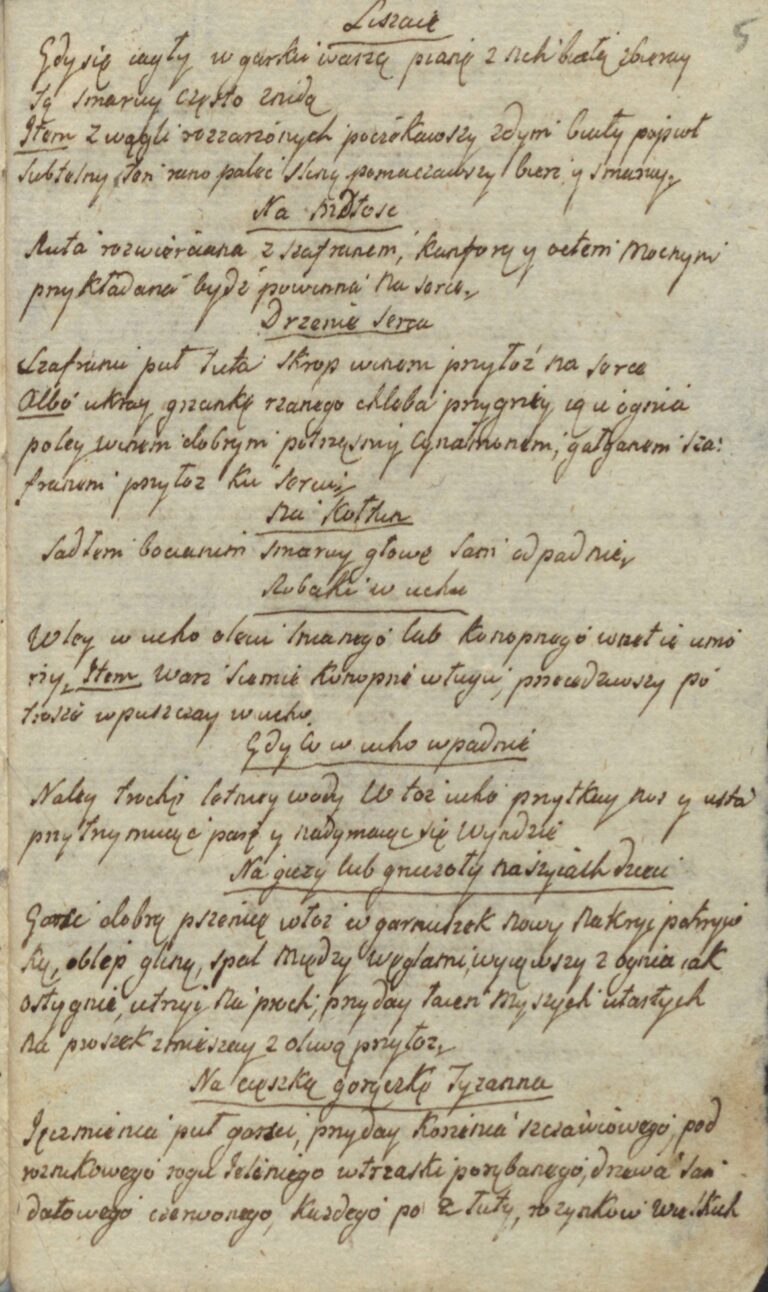 Liszaie
5
Gdy się iagły w garku warzą pianę z nich białą zbieray
tą smaruy często znidą
Item Z węgli rozzarzonych poczekawszy zdym biały popioł
subtelny ten rano palec sliną pomaczawszy bierz y smaruy.
Na Mdłosc
Ruta rozwierciana z szafranem, kamforą y octem mocnym
przykładana bydź powinna na serce.
Drzenie serca
Szafranu puł łuta skrop winem przyłoż na serce
Albo ukray grzankę rzanego chleba przygrzey ią u ognia
poley winem dobrym potrzęsniy Cynamonem, gałganem sza:
franem przyłoż ku sercu.
Na Kołtun
Sadłem bocianim smaruy głowę sam odpadnie.
Robaki w uchu
Wley w ucho oleiu lnianego lub konopnego wnet ie umo
rzy. Item Warz siemie konopne w ługu, przecedziwszy po
trosze wpuszczay w ucho.
Gdy Co w ucho wpadnie
Naley trochę letniey wody W toż ucho przytkay nos y usta
przytrzymuiąc parę y nadymaiąc się Wyndzie
Na guży lub gruczoły na szyiach dzieci
Garść dobrą pszenicę włoż w garnuszek nowy nakryi pokryw
ką, oblep gliną, spal między węglami, wyiąwszy z ognia iak
ostygnie, utrzyi na proch, przyday łaien myszych utartych
na proszek zmieszay z oliwą przyłoż.
Na cięszką gorączkę Tyzanna
Ięczmienia puł garści, przyday korzenia szczawiowego, pod
roznikowego rogu Ieleniego w trzaski porąbanego, drzewa San
dałowego czerwonego, każdego po 2 łuty, rozynkow Wielkich